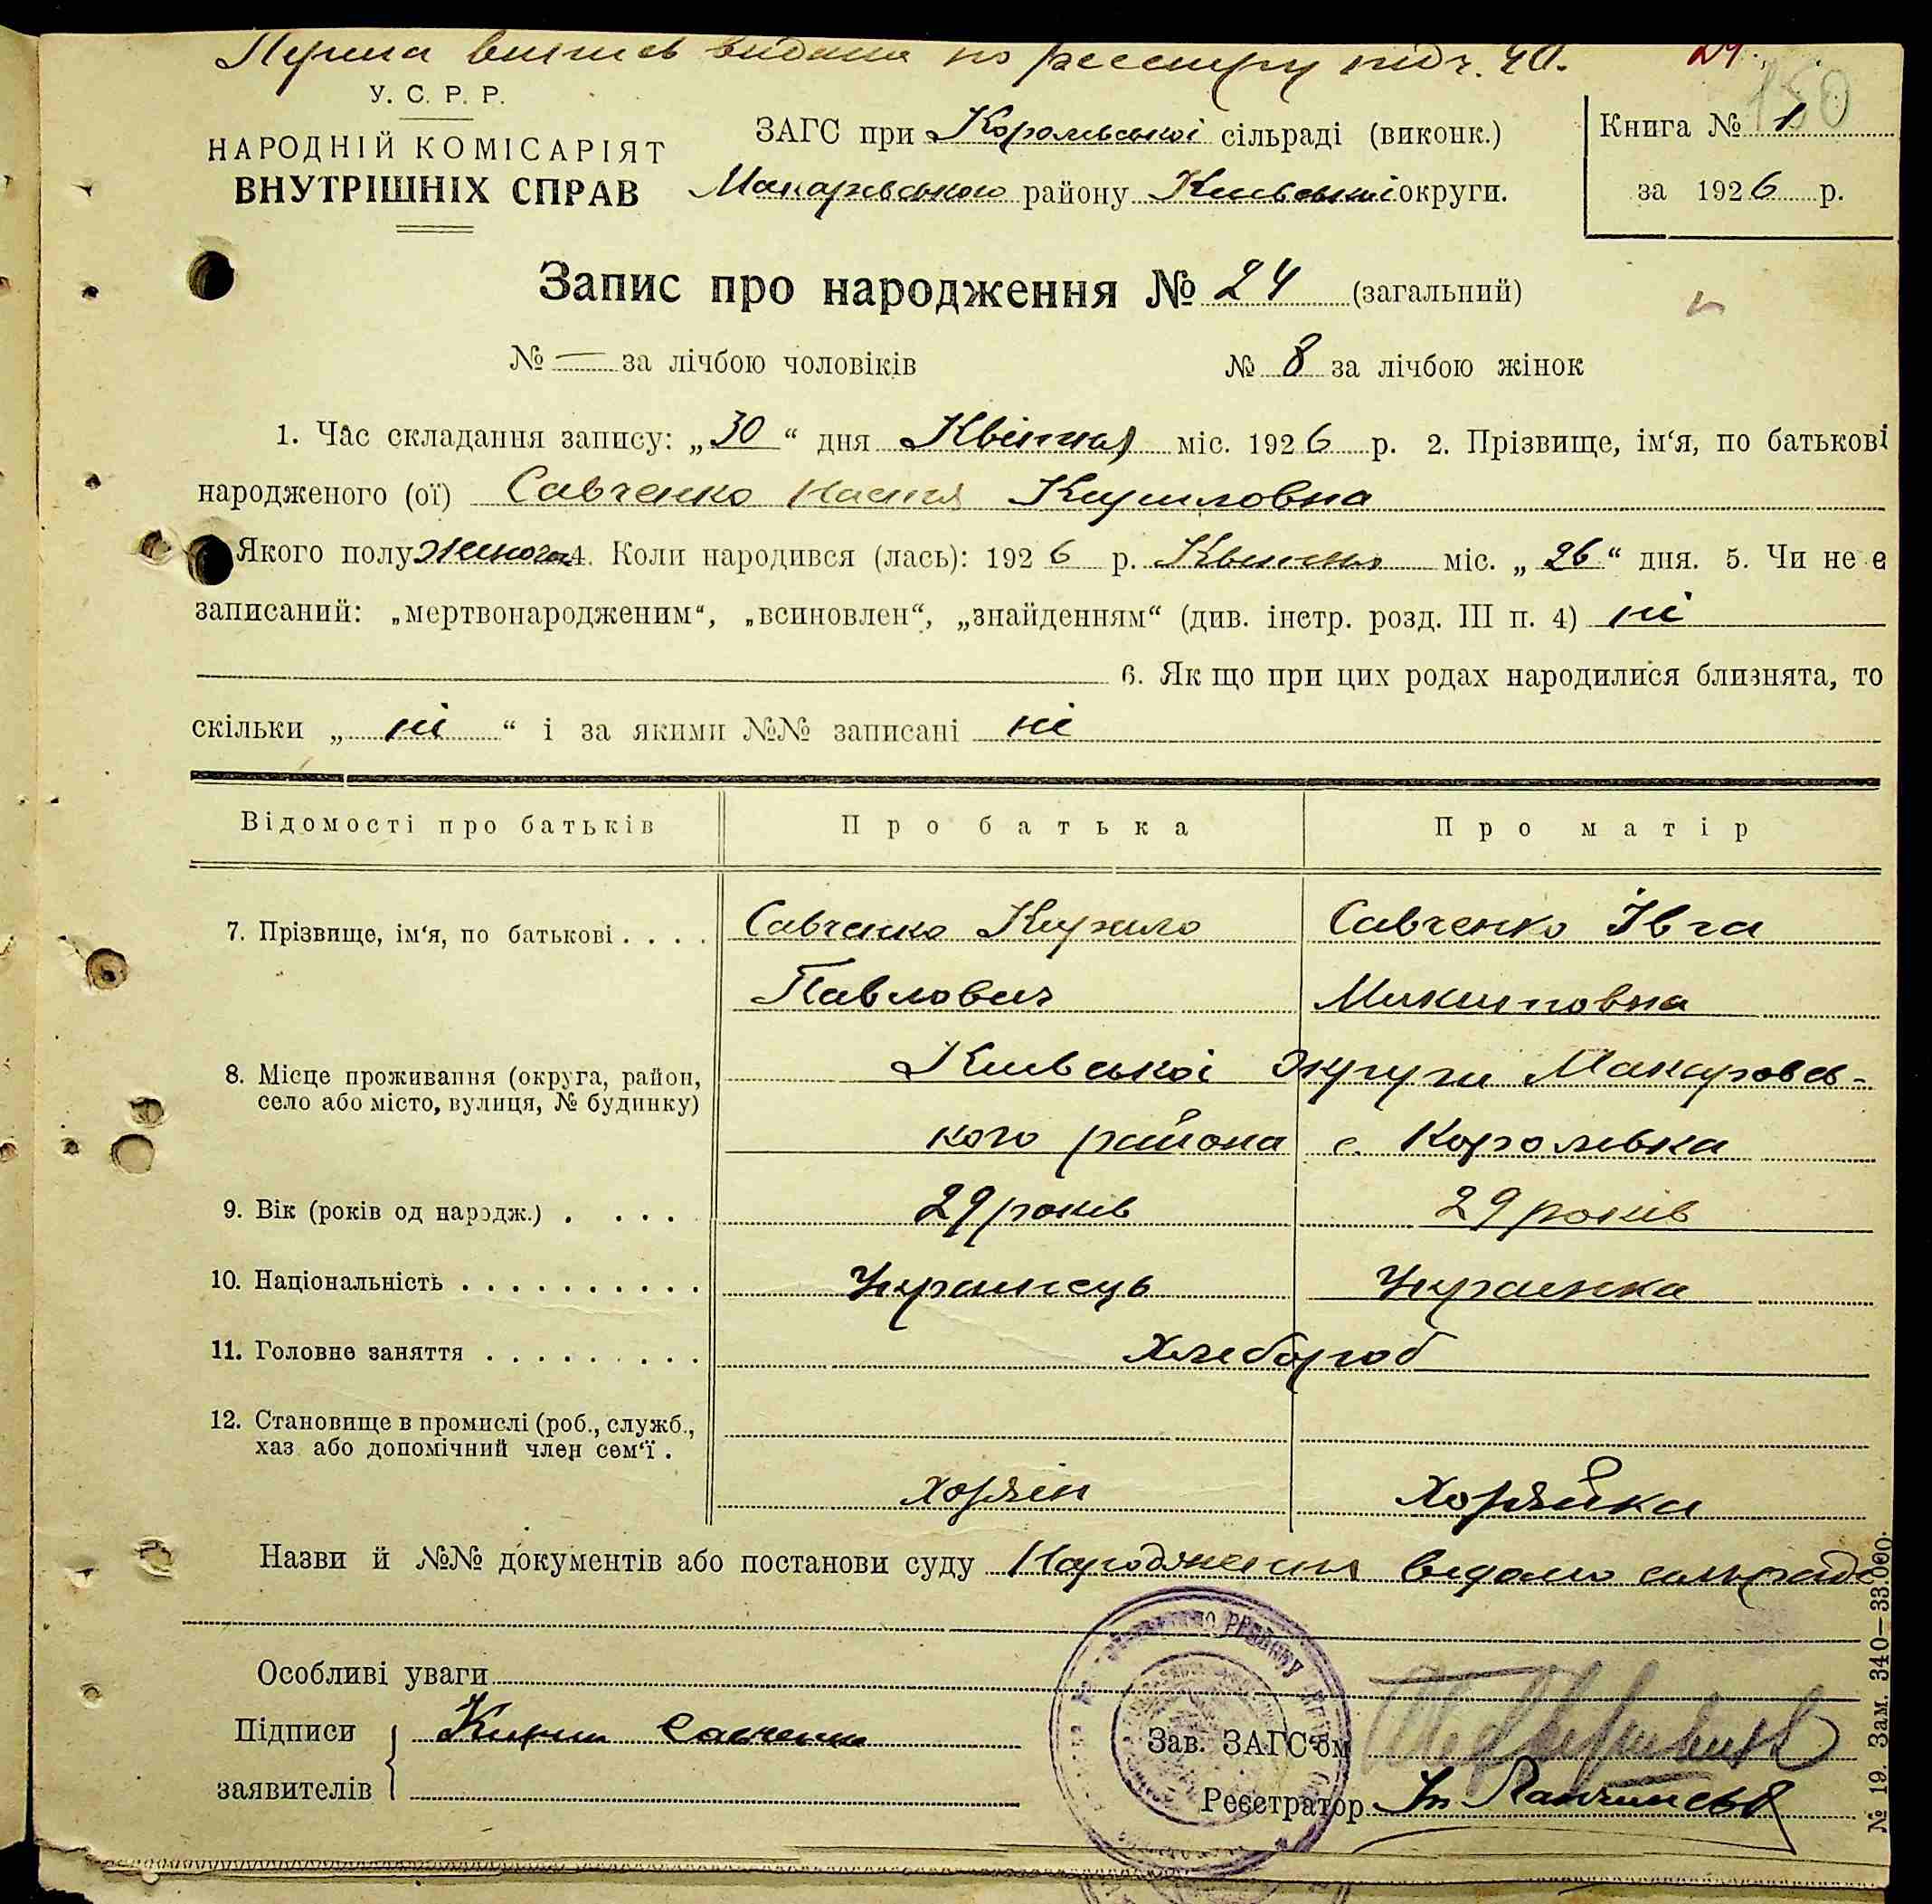 Перша випись видана по реестру під ч. 40. 24.
150
У. С. Р. Р.
НАРОДНІЙ КОМІСАРІЯТ
ВНУТРІШНІХ СПРАВ
ЗАГС при Королівської сільраді (виконк.)
Макарівського району Київської округи.
Книга № 1
за 1926 р.
Запис про народження № 24 (загальний)
№ — за лічбою чоловіків № 8 за лічбою жінок
1. Час складання запису: „30“ дня Квітня міс. 1926 р. 2. Прізвище, ім‘я, по батькові
народженого (ої) Савченко Настя Кириловна
Якого полу женого 4. Коли народився (лась): 1926 р. Квітня міс. „26“ дня. 5. Чи не є
записаний: „мертвонародженим“, „всиновлен“, „знайденням“ (див. інстр. розд. III п. 4) ні
6. Як що при цих родах народилися близнята, то
скільки „ні“ і за якими №№ записані ні
Відомості про батьків Про батька Про матір
7. Прізвище, ім‘я, по батькові . . . . Савченко Кирило Савченко Івга
Павлович Микитовна
8. Місце проживання (округа, район, Київської округи Макаровсь-
село або місто, вулиця, № будинку)
кого района с. Королівка
9. Вік (років од народж.) . . . . 29 років 29 років
10. Національність . . . . . . . . . . Українець Українка
11. Головне заняття . . . . . . . . . Хлебороб
12. Становище в промислі (роб., служб.,
хаз або допомічний член сем‘ї .
Хозяін Хозяйка
Назви й №№ документів або постанови суду Народження ведомо сальраде
Особливі уваги
Підписи Кирил Савченко Зав. ЗАГС‘ом
заявителів Реєстратор
№ 19. Зам. 340—33.000.